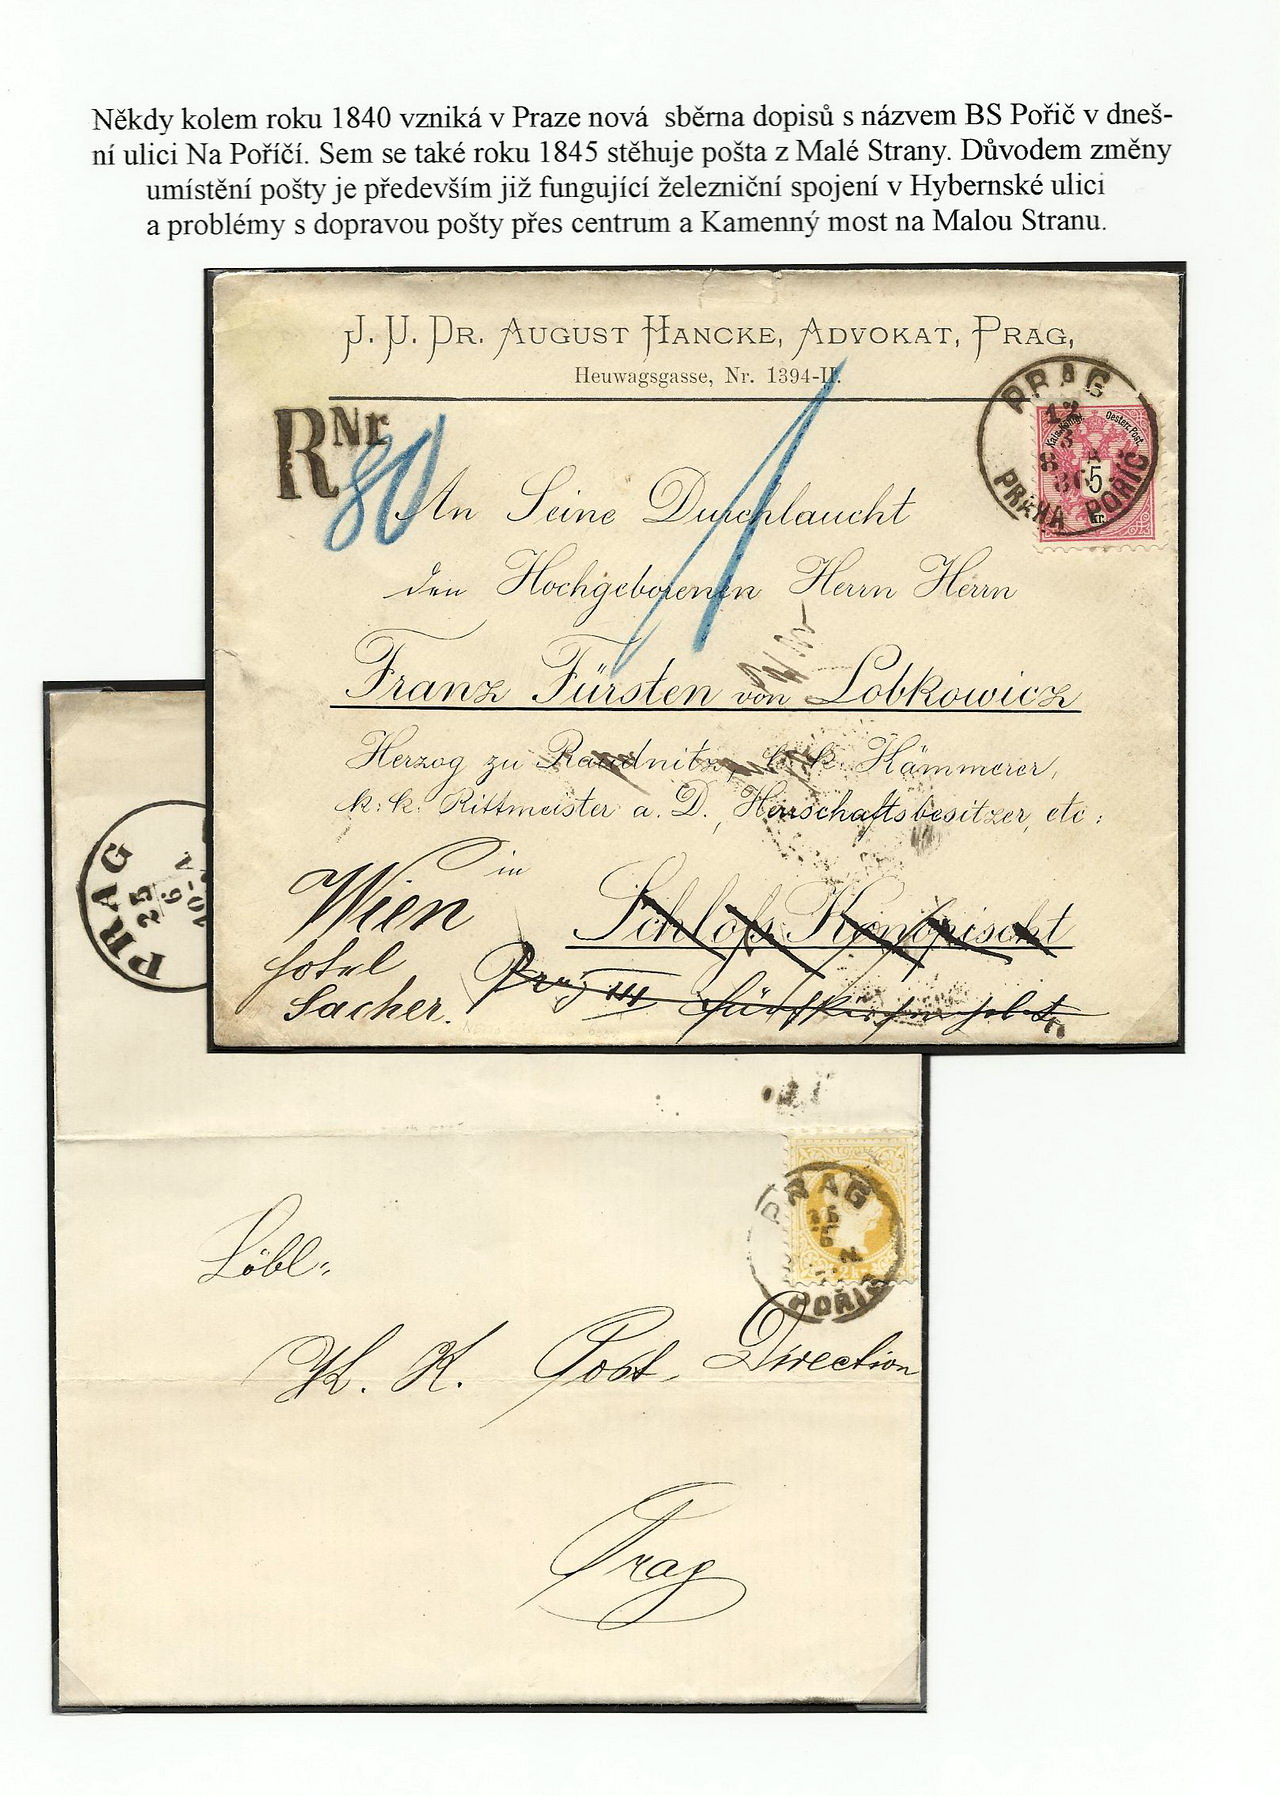 Někdy kolem roku 1840 vzniká v Praze nová sběrna dopisů s názvem BS Pořič v dneš-
ní ulici Na Poříčí. Sem se také roku 1845 stěhuje pošta z Malé Strany. Důvodem změny
umístění pošty je především již fungující železniční spojení v Hybernské ulici
a problémy s dopravou pošty přes centrum a Kamenný most na Malou Stranu.
J. U. Dr. August Hancke, Advokat, Prag,
Heuwagsgasse, Nr. 1394-II.
PRAG
12
5
8
PRAHA POŘÍČ
Kais. Königl. Oesterr. Post.
5
kr.
R Nr
80
1
An Seine Durchlaucht
den Hochgeborenen Herrn Herrn
Franz Fürsten von Lobkowicz
Herzog zu Raudnitz, k. k. Kämmerer,
k. k. Rittmeister a. D., Herrschaftsbesitzer, etc:
in
Schloß Konopischt
Wien
Hotel
Sacher.
Prag III
PRAG
25
6
PRAG
POŘIČ
Löbl:
K. K. Post-Direction
Prag